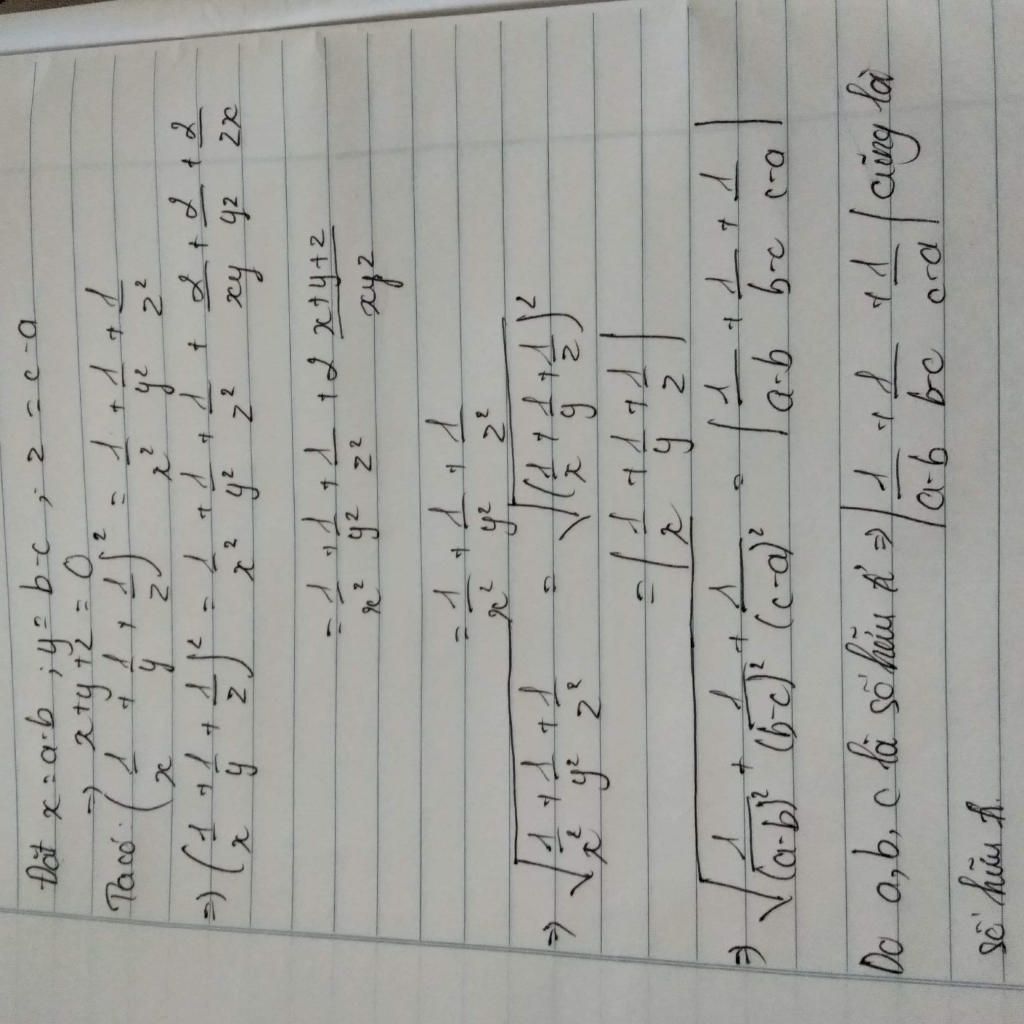 Đặt x = a-b ; y = b-c ; z = c-a
⇒ x+y+z = 0
Ta có: (1/x + 1/y + 1/z)² = 1/x² + 1/y² + 1/z²
⇒ (1/x + 1/y + 1/z)² = 1/x² + 1/y² + 1/z² + 2/xy + 2/yz + 2/zx
= 1/x² + 1/y² + 1/z² + 2 (x+y+z)/xyz
= 1/x² + 1/y² + 1/z²
⇒ √(1/x² + 1/y² + 1/z²) = √((1/x + 1/y + 1/z)²)
= |1/x + 1/y + 1/z|
⇒ √(1/(a-b)² + 1/(b-c)² + 1/(c-a)²) = |1/(a-b) + 1/(b-c) + 1/(c-a)|
Do a, b, c là số hữu tỉ ⇒ |1/(a-b) + 1/(b-c) + 1/(c-a)| cũng là
số hữu tỉ.